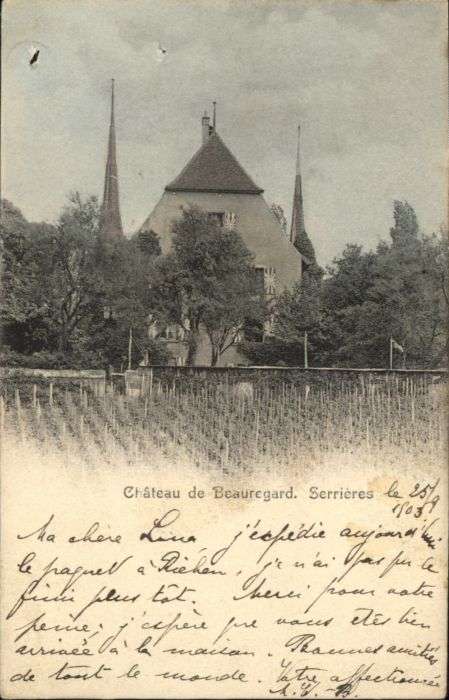 Château de Beauregard. Serrières
le 25/9
1903
Ma chère Lina, j'expédie aujourd'hui
le paquet à Riehen, je n'ai pas pu le
finir plus tôt. Merci pour votre
peine; j'espère que vous etes bien
arrivée à la maison. Bonnes amitiés
de tout le monde. Votre affectionnée